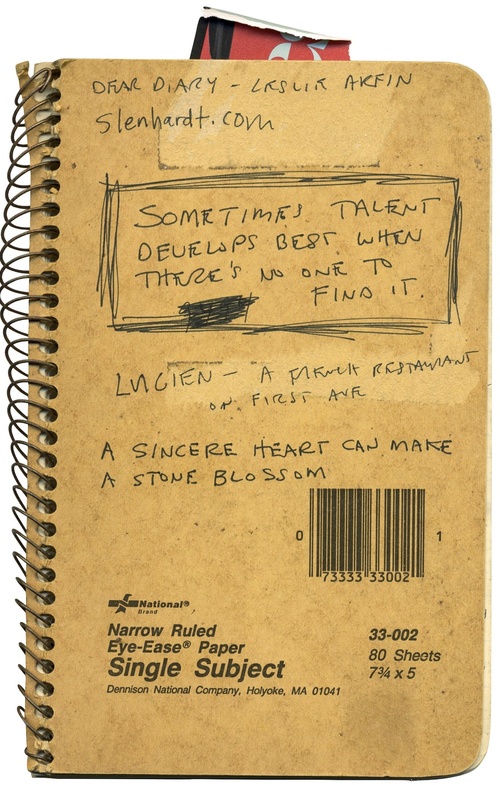 DEAR DIARY - LESLIE ARFIN
Slenhardt.com
SOMETIMES TALENT
DEVELOPS BEST WHEN
THERE'S NO ONE TO
FIND IT.
LUCIEN - A FRENCH RESTAURANT
ON FIRST AVE
A SINCERE HEART CAN MAKE
A STONE BLOSSOM
0 73333 33002 1
National®
Brand
Narrow Ruled
Eye-Ease® Paper
Single Subject
Dennison National Company, Holyoke, MA 01041
33-002
80 Sheets
7¾ x 5